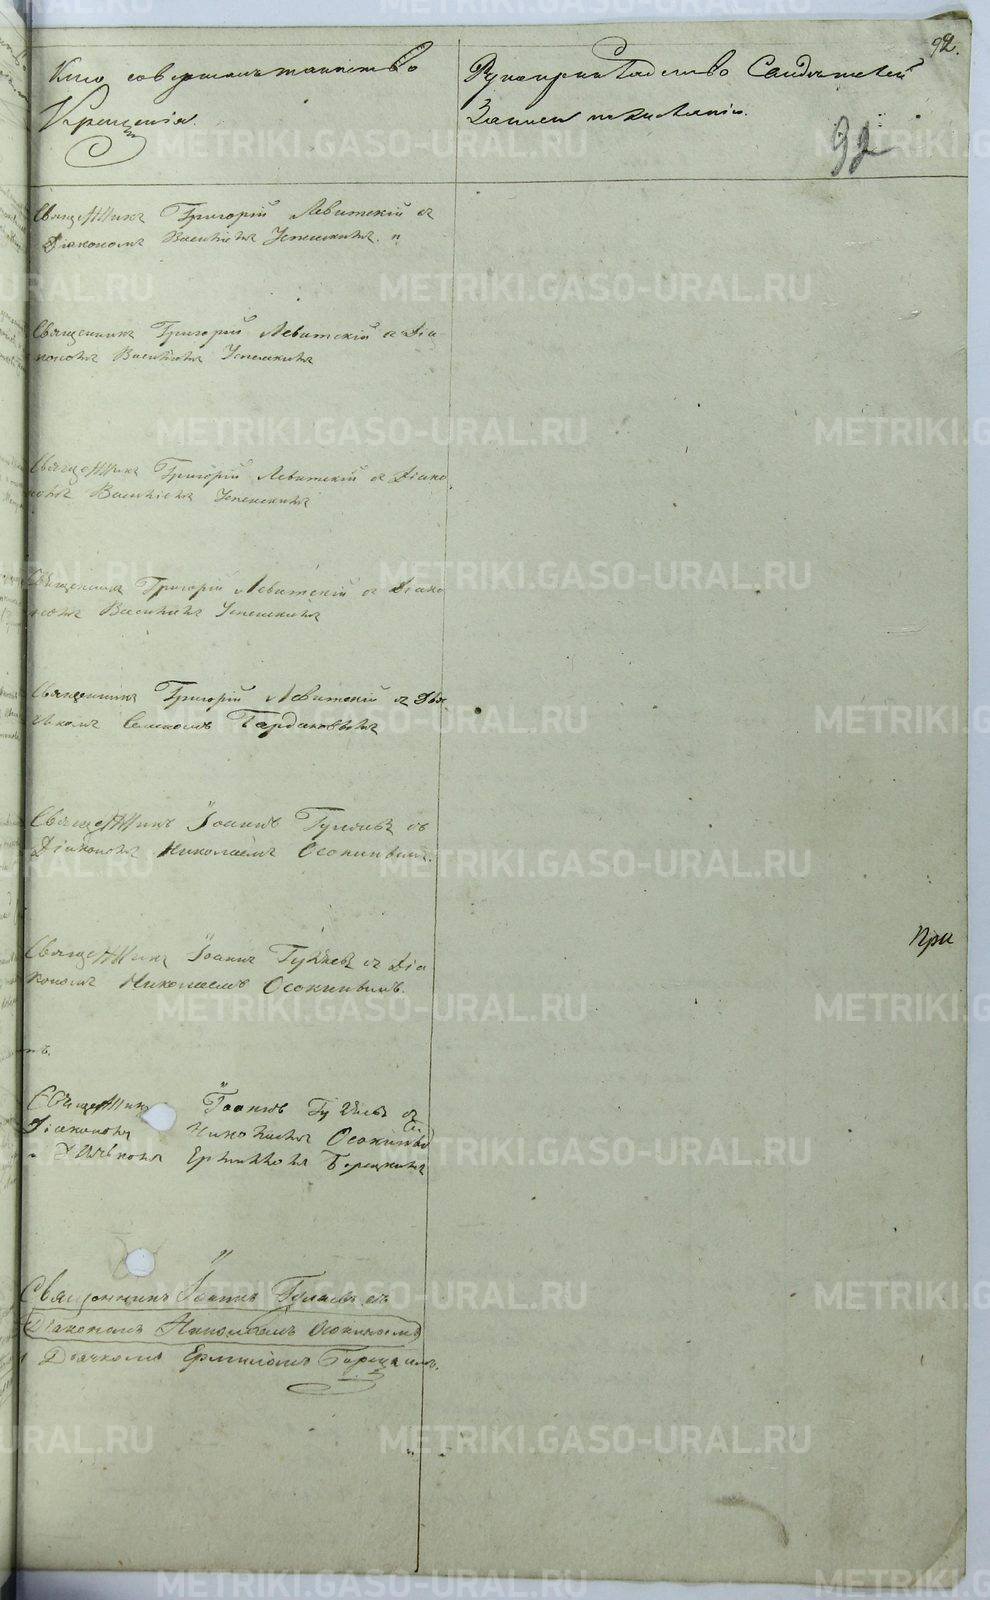 92.
Кто совершалъ таинство
Крещенія.
Рукоприкладство Свидѣтелей
Записи по желанію.
92
Священникъ Григорій Левитскій съ
Діакономъ Василіемъ Успенскимъ.
Священникъ Григорій Левитскій съ Діа
кономъ Василіемъ Успенскимъ
Священникъ Григорій Левитскій съ Діако
номъ Василіемъ Успенскимъ
Священникъ Григорій Левитскій съ Діако
номъ Василіемъ Успенскимъ
Священникъ Григорій Левитскій съ Дья
Священникъ Іоаннъ съ
Діакономъ Николаемъ Осокинымъ.
При
Священникъ Іоаннъ съ Діа
кономъ Николаемъ Осокинымъ.
Священникъ Іоаннъ съ
Діакономъ Николаемъ
и Дьячкомъ
Священникъ Іоаннъ съ
Діакономъ Николаемъ Осокинымъ
Дьячкомъ
METRIKI.GASO-URAL.RU